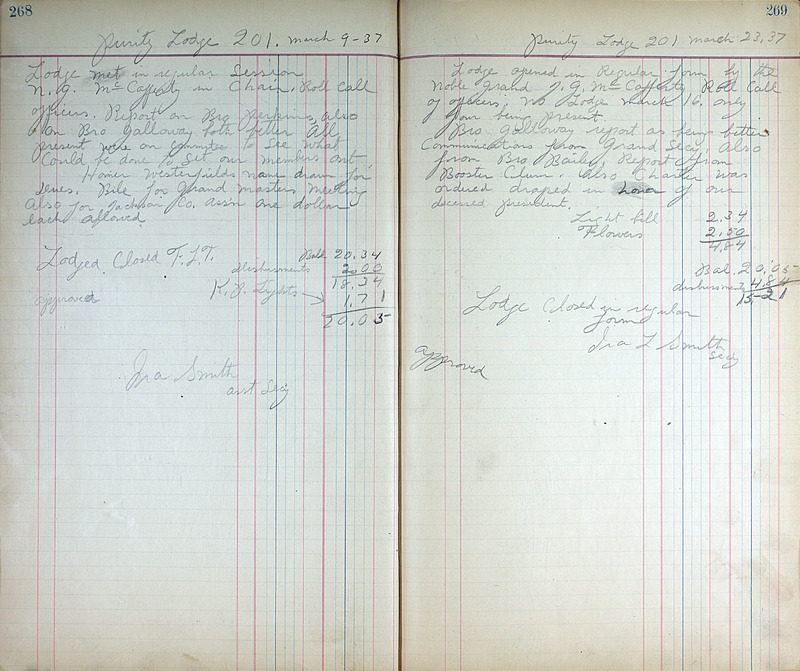 268
Purity Lodge 201. march 9-37
Lodge met in regular Session
N. G. McCafferty in Chair. Roll Call
officers. Report on Bro Perkins, also
on Bro Galloway both better All
present were on committee to See what
Could be done to Get our members out.
Homer Westerfields name drawn for
Dues. Bill for Grand masters meeting
Also for Jackson Co. Ass'n one dollar
each allowed
Lodged Closed F. L. T.
Ball 20.34
disbursments 2.00
18.34
approved K. P. Lights 1.71
20.05
Ira Smith
asst Secy
269
Purity Lodge 201 march 23, 37
Lodge opened in Regular form by the
Noble Grand J. G. McCafferty Roll Call
of officers, no Lodge march 16. only
four being present.
Bro. Galloway report as being better
Communications from Grand Secy, also
from Bro Bailey, Report from
Booster Clum. Also Charter was
ordered draped in honor of our
deceased president.
Light bill 2.34
Flowers 2.50
4.84
Bal. 20.05
disbursment 4.84
15-21
Lodge Closed in regular
form
Ira L Smith
Secy
approved